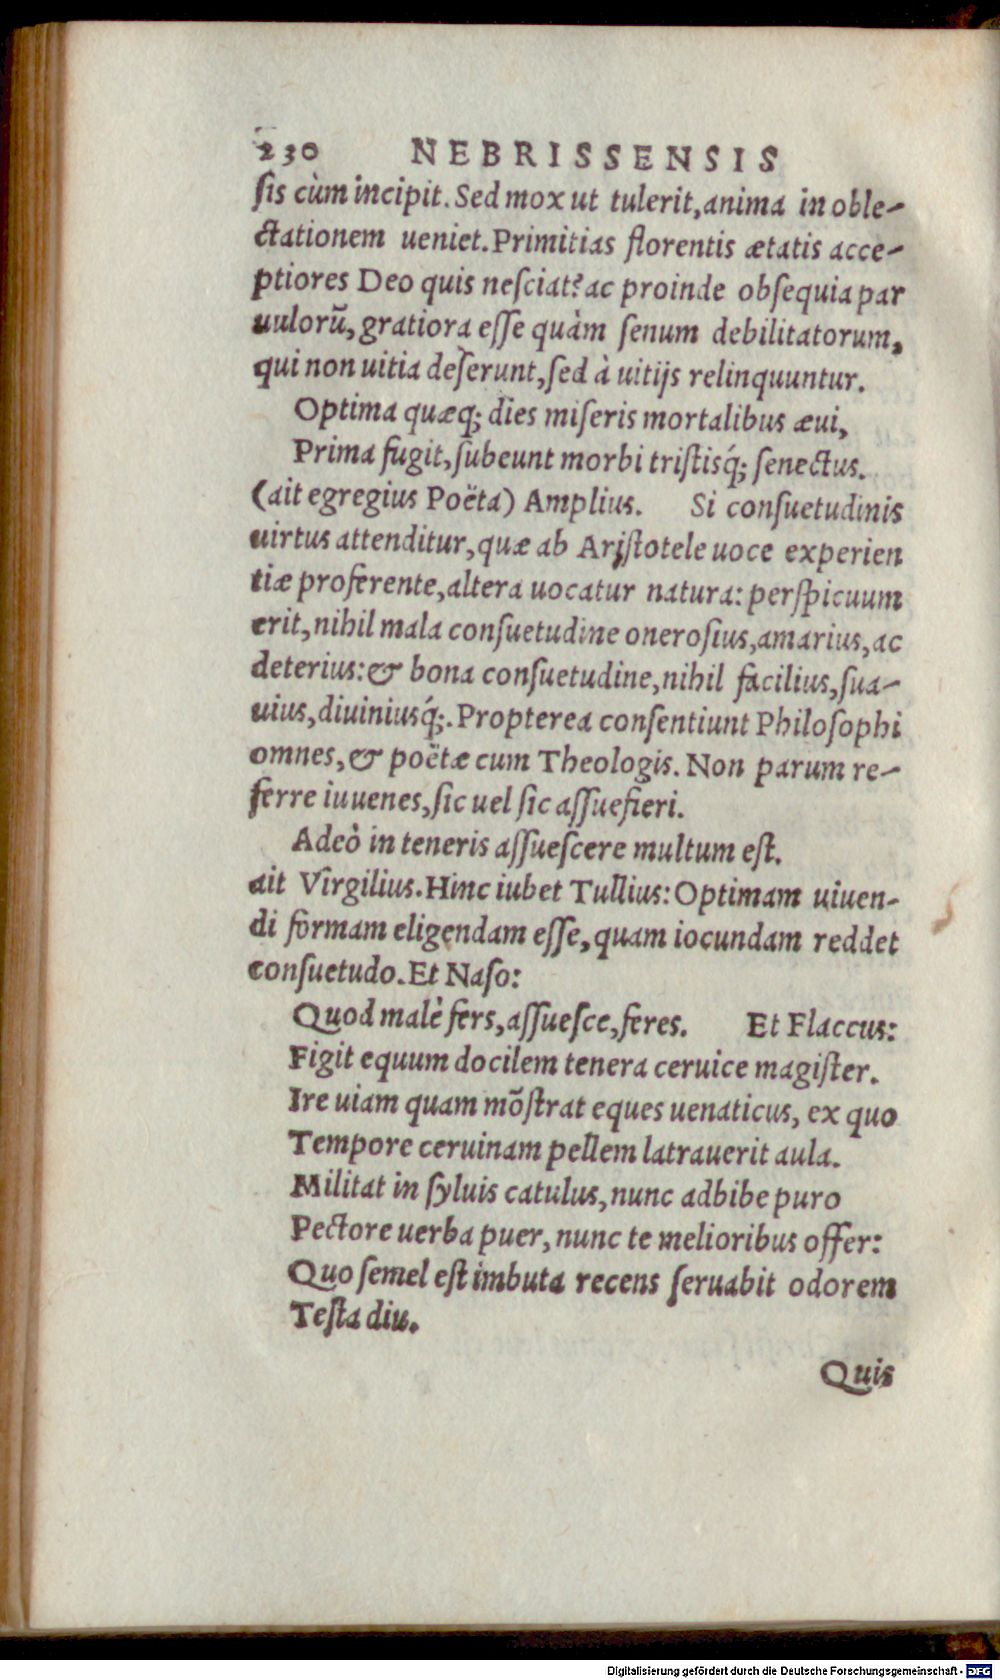 230 NEBRISSENSIS
ſis cùm incipit. Sed mox ut tulerit, anima in oble-
ctationem ueniet. Primitias florentis ætatis acce-
ptiores Deo quis neſciat? ac proinde obſequia par
uulorũ, gratiora eſſe quàm ſenum debilitatorum,
qui non uitia deſerunt, ſed à uitijs relinquuntur.
Optima quæq; dies miſeris mortalibus æui,
Prima fugit, ſubeunt morbi triſtisq́; ſenectus.
(ait egregius Poëta) Amplius. Si conſuetudinis
uirtus attenditur, quæ ab Ariſtotele uoce experien
tiæ proferente, altera uocatur natura: perſpicuum
erit, nihil mala conſuetudine oneroſius, amarius, ac
deterius: & bona conſuetudine, nihil facilius, ſua-
uius, diuiniusq́;. Propterea conſentiunt Philoſophi
omnes, & poëtæ cum Theologis. Non parum re-
ferre iuuenes, ſic uel ſic aſſuefieri.
Adeò in teneris aſſueſcere multum eſt.
ait Virgilius. Hinc iubet Tullius: Optimam uiuen-
di formam eligendam eſſe, quam iocundam reddet
conſuetudo. Et Naſo:
Quod malè fers, aſſueſce, feres. Et Flaccus:
Figit equum docilem tenera ceruice magiſter.
Ire uiam quam mõſtrat eques uenaticus, ex quo
Tempore ceruinam pellem latrauerit aula.
Militat in ſyluis catulus, nunc adbibe puro
Pectore uerba puer, nunc te melioribus offer:
Quo ſemel eſt imbuta recens ſeruabit odorem
Teſta diu.
Quis
Digitalisierung gefördert durch die Deutsche Forschungsgemeinschaft - DFG